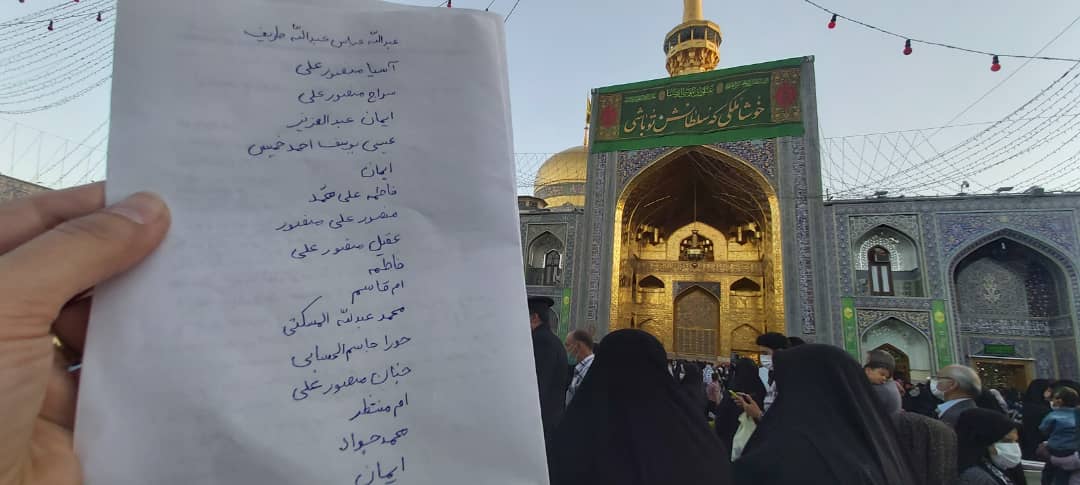 عبدالله عباس عبدالله طريف
آسيا منصور علي
سراج منصور علي
ايمان عبدالعزيز
عيسى يوسف احمد خميس
ايمان
فاطمه علي محمد
منصور علي منصور
عقيل منصور علي
فاطمه
ام قاسم
محمد عبدالله المسكتي
حورا جاسم
حنان منصور علي
ام منتظر
محمد جواد
ايمان
خوشا ملکی که سلطانش تو باشی